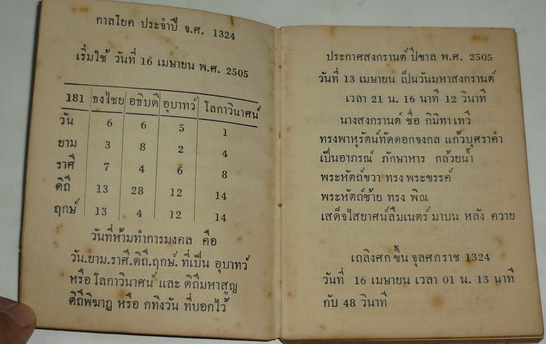 กาลโยค ประจำปี จ.ศ. 1324
เริ่มใช้ วันที่ 16 เมษายน พ.ศ. 2505
181 ธงไชย อธิบดี อุบาทว์ โลกาวินาศน์
วัน 6 6 5 1
ยาม 3 8 2 4
ราศี 7 4 6 8
ดิถี 13 28 12 14
ฤกษ์ 13 4 12 14
วันที่ห้ามทำการมงคล คือ
วัน.ยาม.ราศี.ดิถี.ฤกษ์. ที่เป็น อุบาทว์
หรือ โลกาวินาศน์ และ ดิถีมหาสูญ
ดิถีพิฆาฏ หรือ กทิงวัน ที่บอกไว้
ประกาศสงกรานต์ ปีขาล พ.ศ. 2505
วันที่ 13 เมษายน เป็นวันมหาสงกรานต์
เวลา 21 น. 16 นาที 12 วินาที
นางสงกรานต์ ชื่อ กิมิทาเทวี
ทรงพาหุรัตน์ทัดดอกจงกล แก้วบุศราคำ
เป็นอาภรณ์ ภักษาหาร กล้วยน้ำ
พระหัตถ์ขวา ทรง พระขรรค์
พระหัตถ์ซ้าย ทรง พิณ
เสด็จไสยาศน์ลืมเนตร์ มาบน หลัง ควาย
เถลิงศก ขึ้น จุลศกราช 1324
วันที่ 16 เมษายน เวลา 01 น. 13 นาที
กับ 48 วินาที